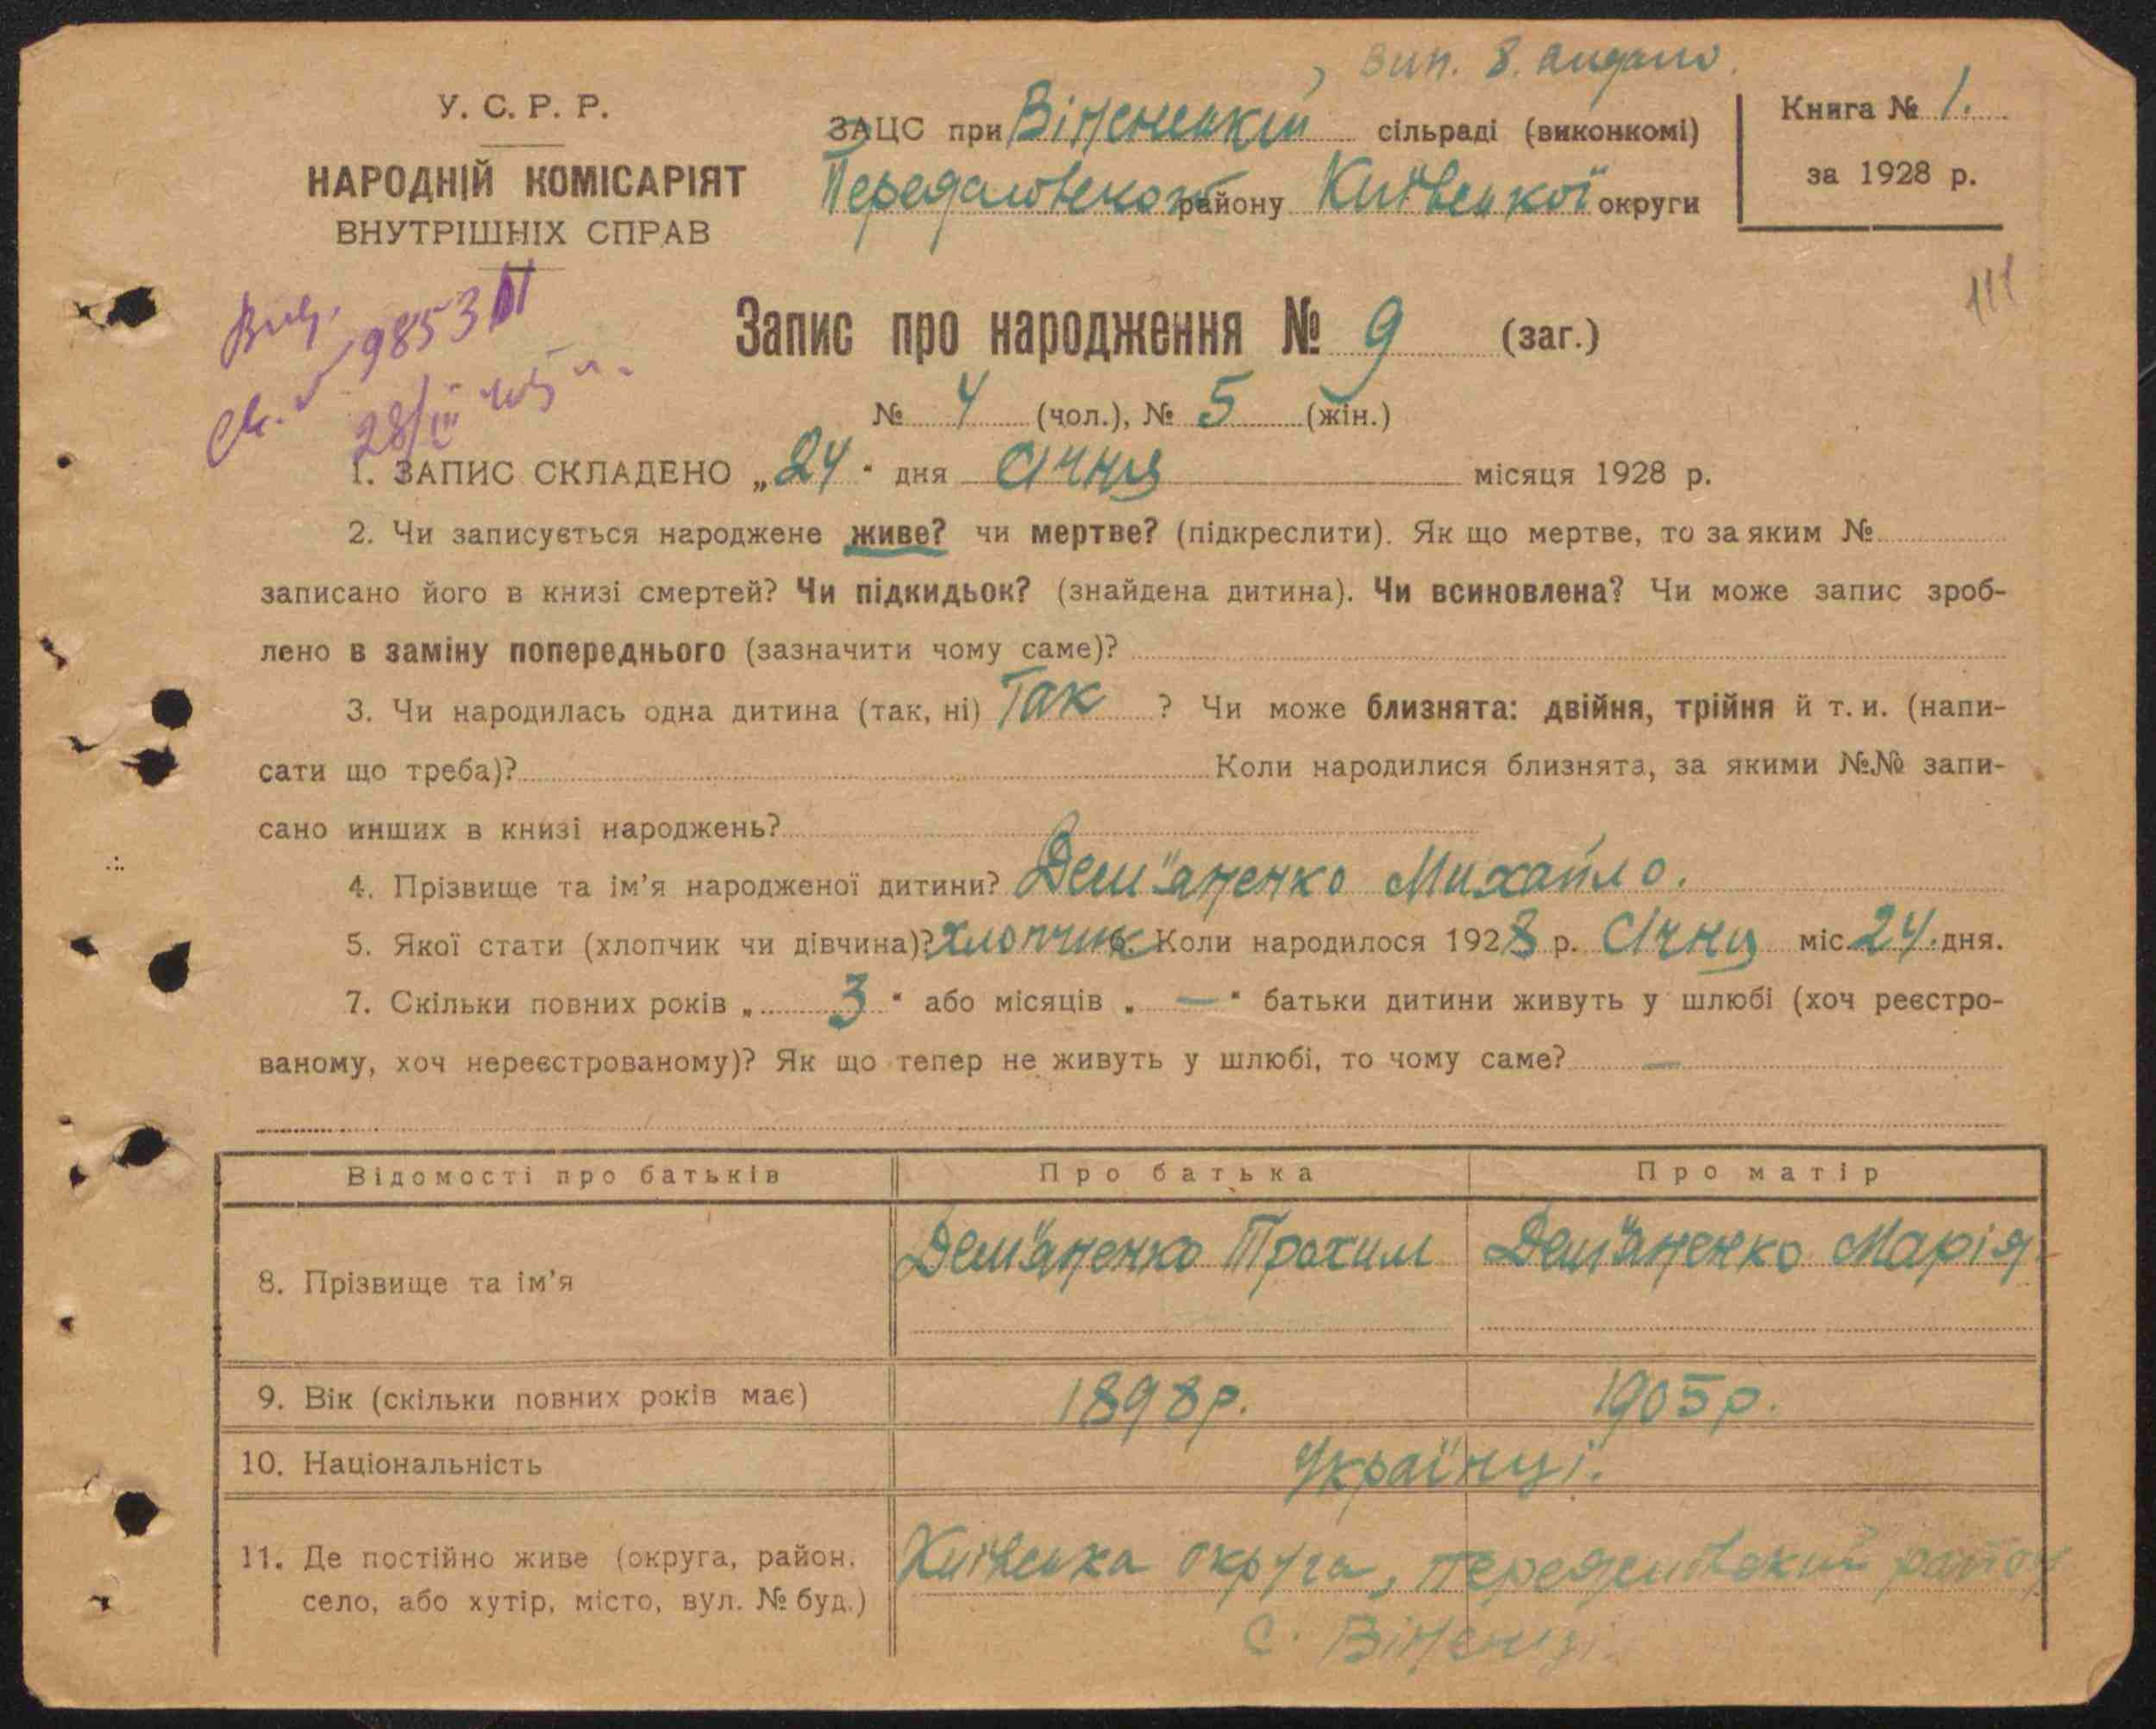 Вип. 8. видано.
У. С. Р. Р.
НАРОДНІЙ КОМІСАРІЯТ
ВНУТРІШНІХ СПРАВ
ЗАЦС при Віненській сільраді (виконкомі)
району Київської округи
Книга № 1.
за 1928 р.
111
9853
28/III
Запис про народження № 9 (заг.)
№ 4 (чол.), № 5 (жін.)
1. ЗАПИС СКЛАДЕНО „24“ дня Січня місяця 1928 р.
2. Чи записується народжене живе? чи мертве? (підкреслити). Як що мертве, то за яким №
записано його в книзі смертей? Чи підкидьок? (знайдена дитина). Чи всиновлена? Чи може запис зроб-
лено в заміну попереднього (зазначити чому саме)?
3. Чи народилась одна дитина (так, ні) Так ? Чи може близнята: двійня, трійня й т. и. (напи-
сати що треба)? Коли народилися близнята, за якими №№ запи-
сано инших в книзі народжень?
4. Прізвище та ім'я народженої дитини? Дем"яненко Михайло.
5. Якої стати (хлопчик чи дівчина)? Хлопчик 6. Коли народилося 1928 р. Січня міс. 24. дня.
7. Скільки повних років „ 3 “ або місяців „ — “ батьки дитини живуть у шлюбі (хоч реєстро-
ваному, хоч нереєстрованому)? Як що тепер не живуть у шлюбі, то чому саме? —
Відомості про батьків Про батька Про матір
8. Прізвище та ім'я Дем"яненко Трохим Дем"яненко Марія
9. Вік (скільки повних років має) 1898 р. 1905 р.
10. Національність Українці.
11. Де постійно живе (округа, район, Київська округа, район
село, або хутір, місто, вул. № буд.) с. Віненці.